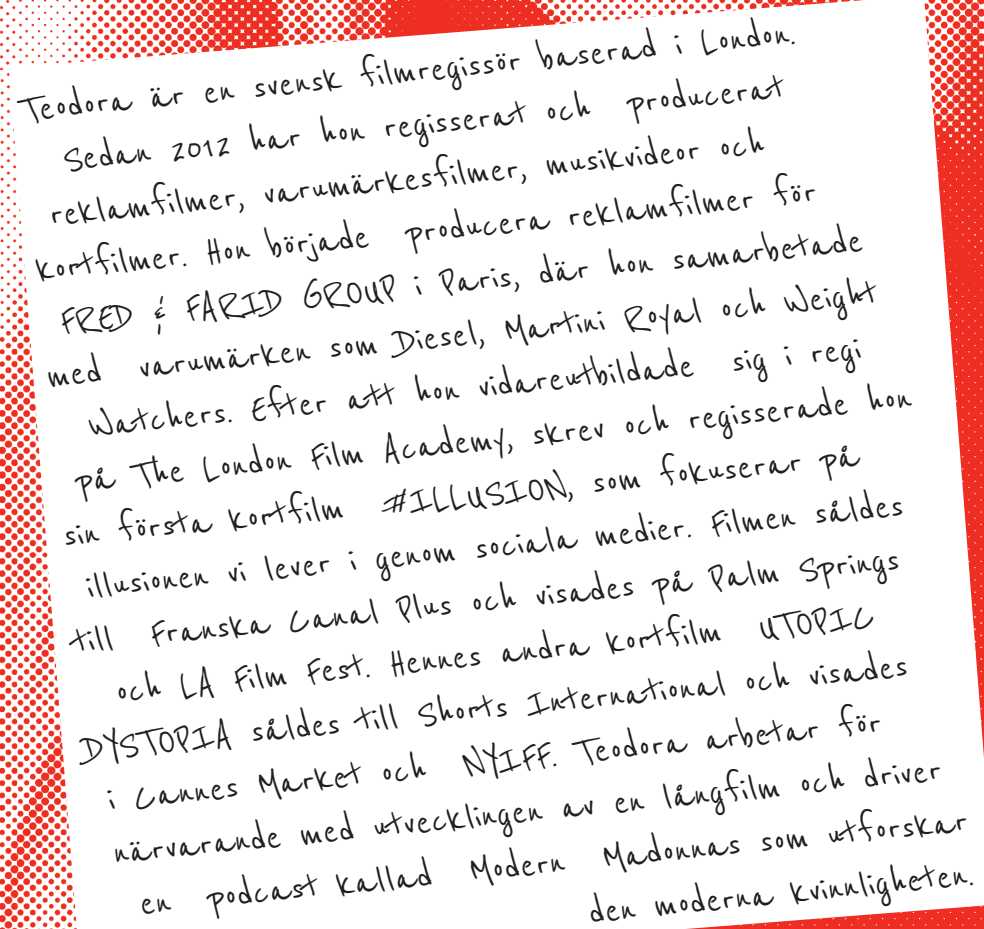 Teodora är en svensk filmregissör baserad i London.
Sedan 2012 har hon regisserat och producerat
reklamfilmer, varumärkesfilmer, musikvideor och
kortfilmer. Hon började producera reklamfilmer för
FRED & FARID GROUP i Paris, där hon samarbetade
med varumärken som Diesel, Martini Royal och Weight
Watchers. Efter att hon vidareutbildade sig i regi
på The London Film Academy, skrev och regisserade hon
sin första kortfilm #ILLUSION, som fokuserar på
illusionen vi lever i genom sociala medier. Filmen såldes
till Franska Canal Plus och visades på Palm Springs
och LA Film Fest. Hennes andra kortfilm UTOPIC
DYSTOPIA såldes till Shorts International och visades
i Cannes Market och NYIFF. Teodora arbetar för
närvarande med utvecklingen av en långfilm och driver
en podcast kallad Modern Madonnas som utforskar
den moderna kvinnligheten.